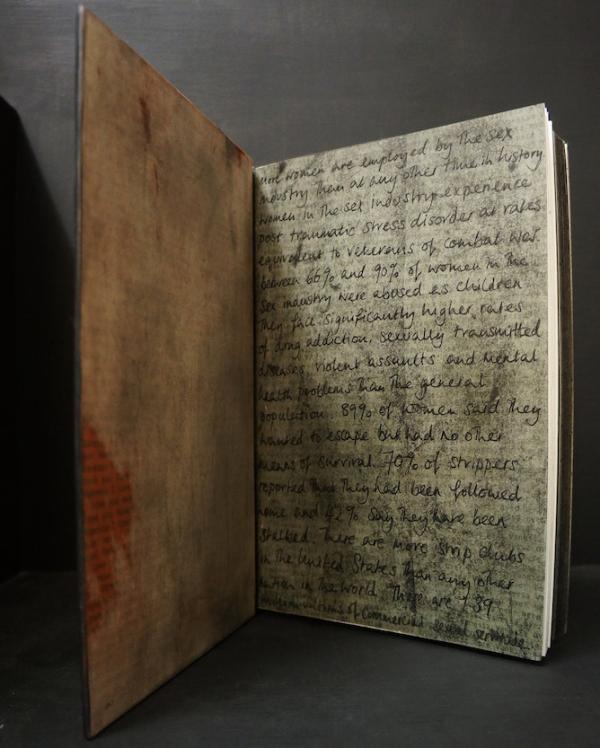 more women are employed by the sex
industry than at any other time in history
women in the sex industry experience
post traumatic stress disorder at rates
equivalent to veterans of combat war.
between 66% and 90% of women in the
sex industry were abused as children
They face significantly higher rates
of drug addiction, sexually transmitted
diseases, violent assaults and mental
health problems than the general
population. 89% of women said they
wanted to escape but had no other
means of survival. 70% of strippers
reported that they had been followed
home and 42% say they have been
stalked. There are more strip clubs
in the United States than any other
nation in the world. There are 1.39
of commercial sexual servitude